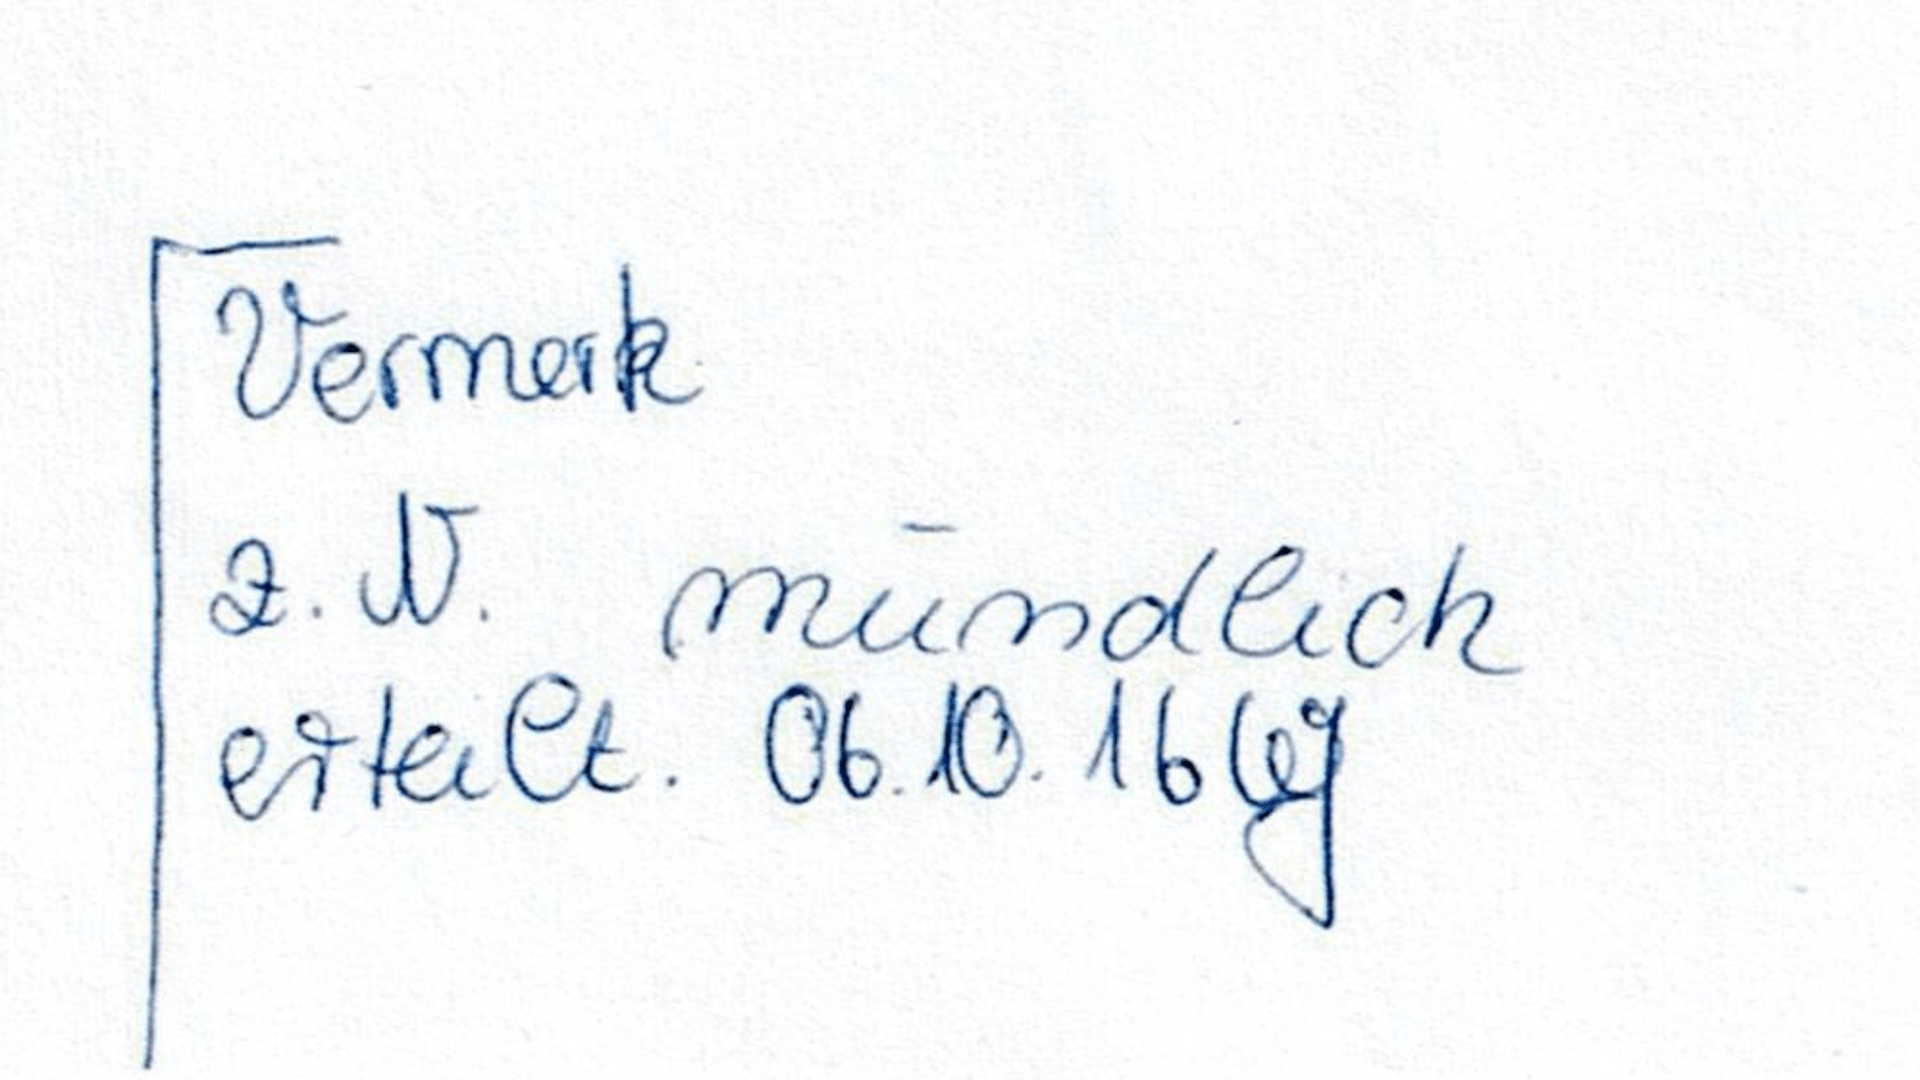 Vermerk
z. N. mündlich
erteilt. 06.10.16